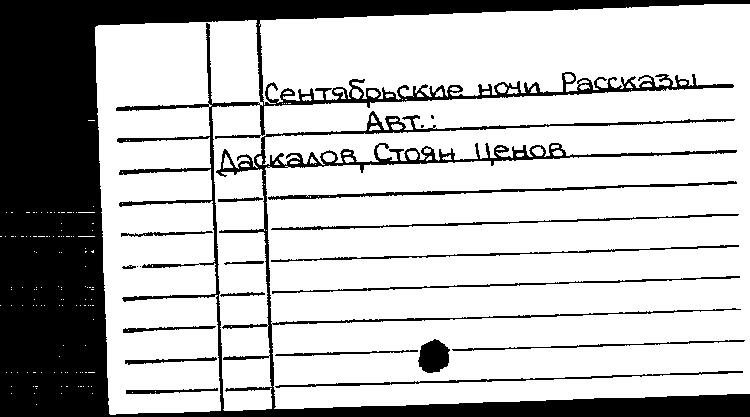 Сентябрьские ночи. Рассказы
Авт.:
Даскалов, Стоян Ценов